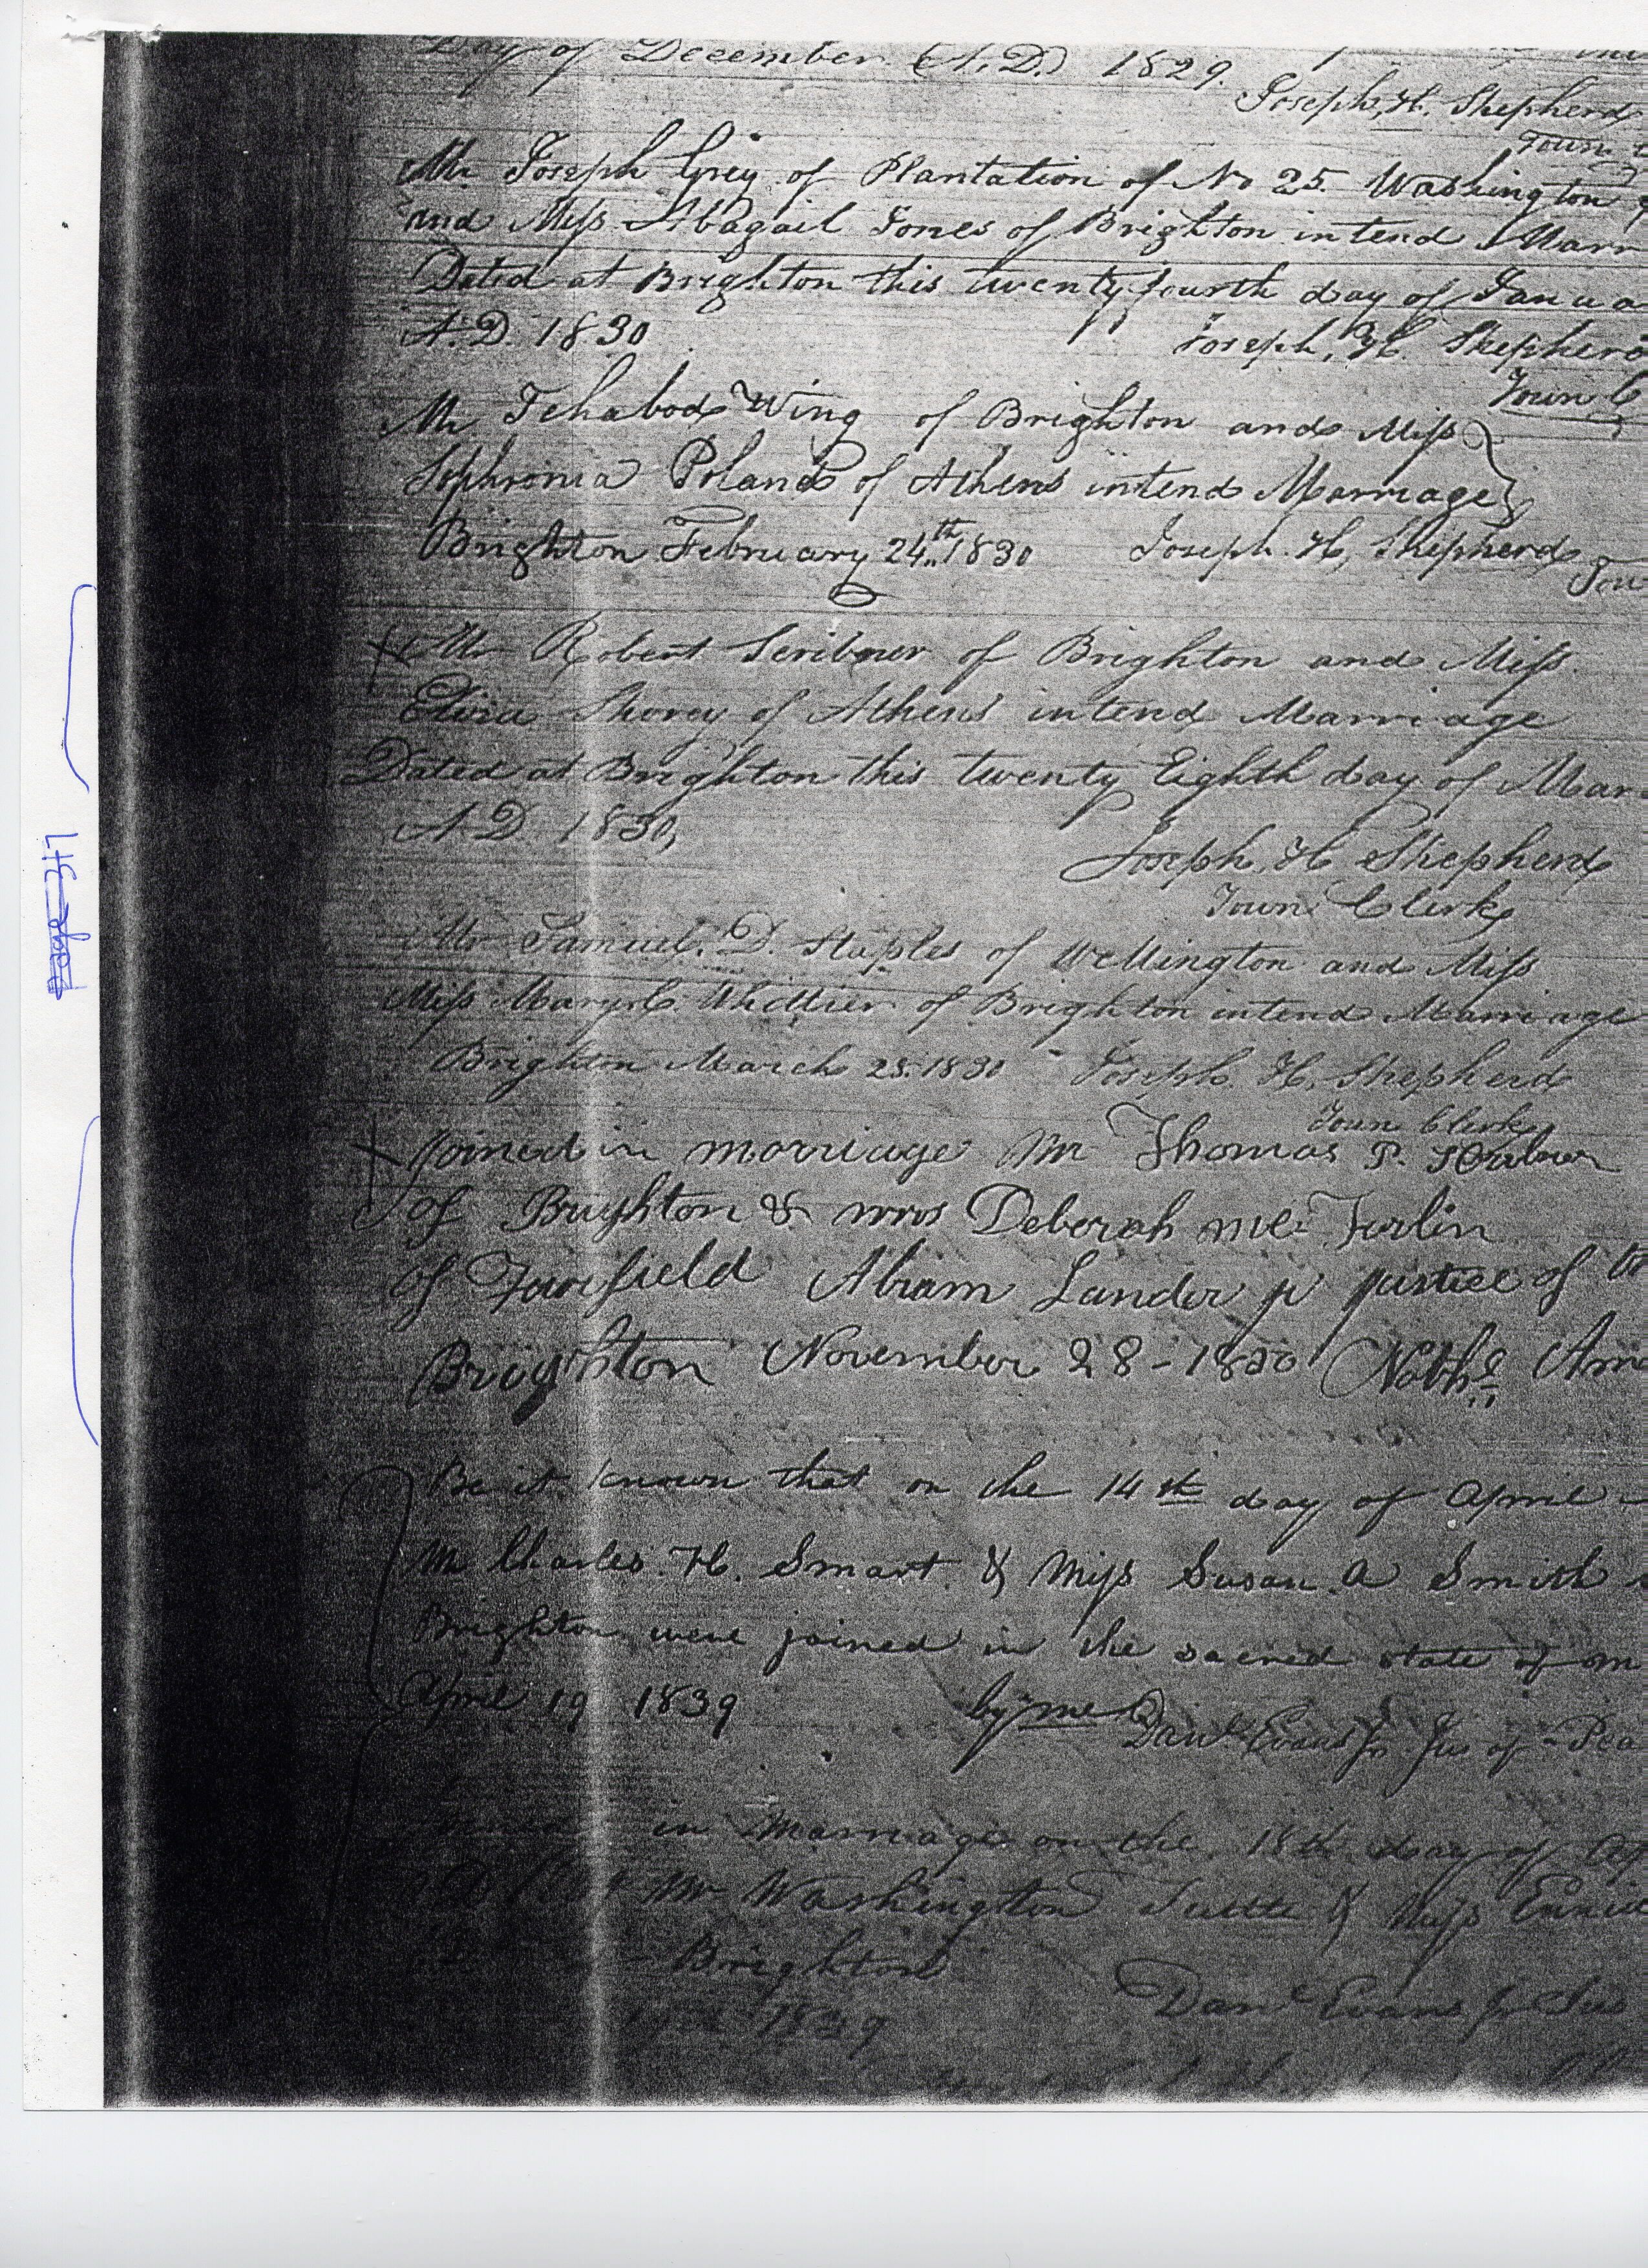 Day of December (A.D.) 1829
Joseph, H. Shepherd
Town
Mr Joseph Grey of Plantation of No 25 Washington
and Miss Abagail Jones of Brighton intend Marr
Dated at Brighton this twenty fourth day of Janua
A.D. 1830
Joseph, H. Shepherd
Town C
Mr Ichabod Wing of Brighton and Miss
Sophronia Poland of Athens intend Marriage
Brighton February 24th 1830 Joseph. H, Shepherd
Tow
Mr Robert Scribner of Brighton and Miss
Elvira Shorey of Athens intend Marriage
Dated at Brighton this twenty Eighth day of Mar
A.D. 1830,
Joseph, H Shepherd
Town Clerk
Mr Samuel. D. Staples of Wellington and Miss
Miss Mary C. Whittier of Brighton intend Marriage
Brighton March 28. 1830 Joseph H, Shepherd
Town Clerk
Joined in marriage Mr Thomas P.
of Brighton & mrs Deborah mc Farlin
of Fairfield Abram Lander jr justice of
Brighton November 28 - 1830 Nathl Am
Be it known that on the 14th day of April
Mr Charles. H. Smart & Miss Susan. A Smith
Brighton were joined in the sacred state of m
April 19 1839 by me Danl Evans Jr Jus of Pea
in Marriage on the 18th day of Ap
Mr Washington Tuttle & Miss
Brighton
Danl Evans jr Jus
1839
page 317